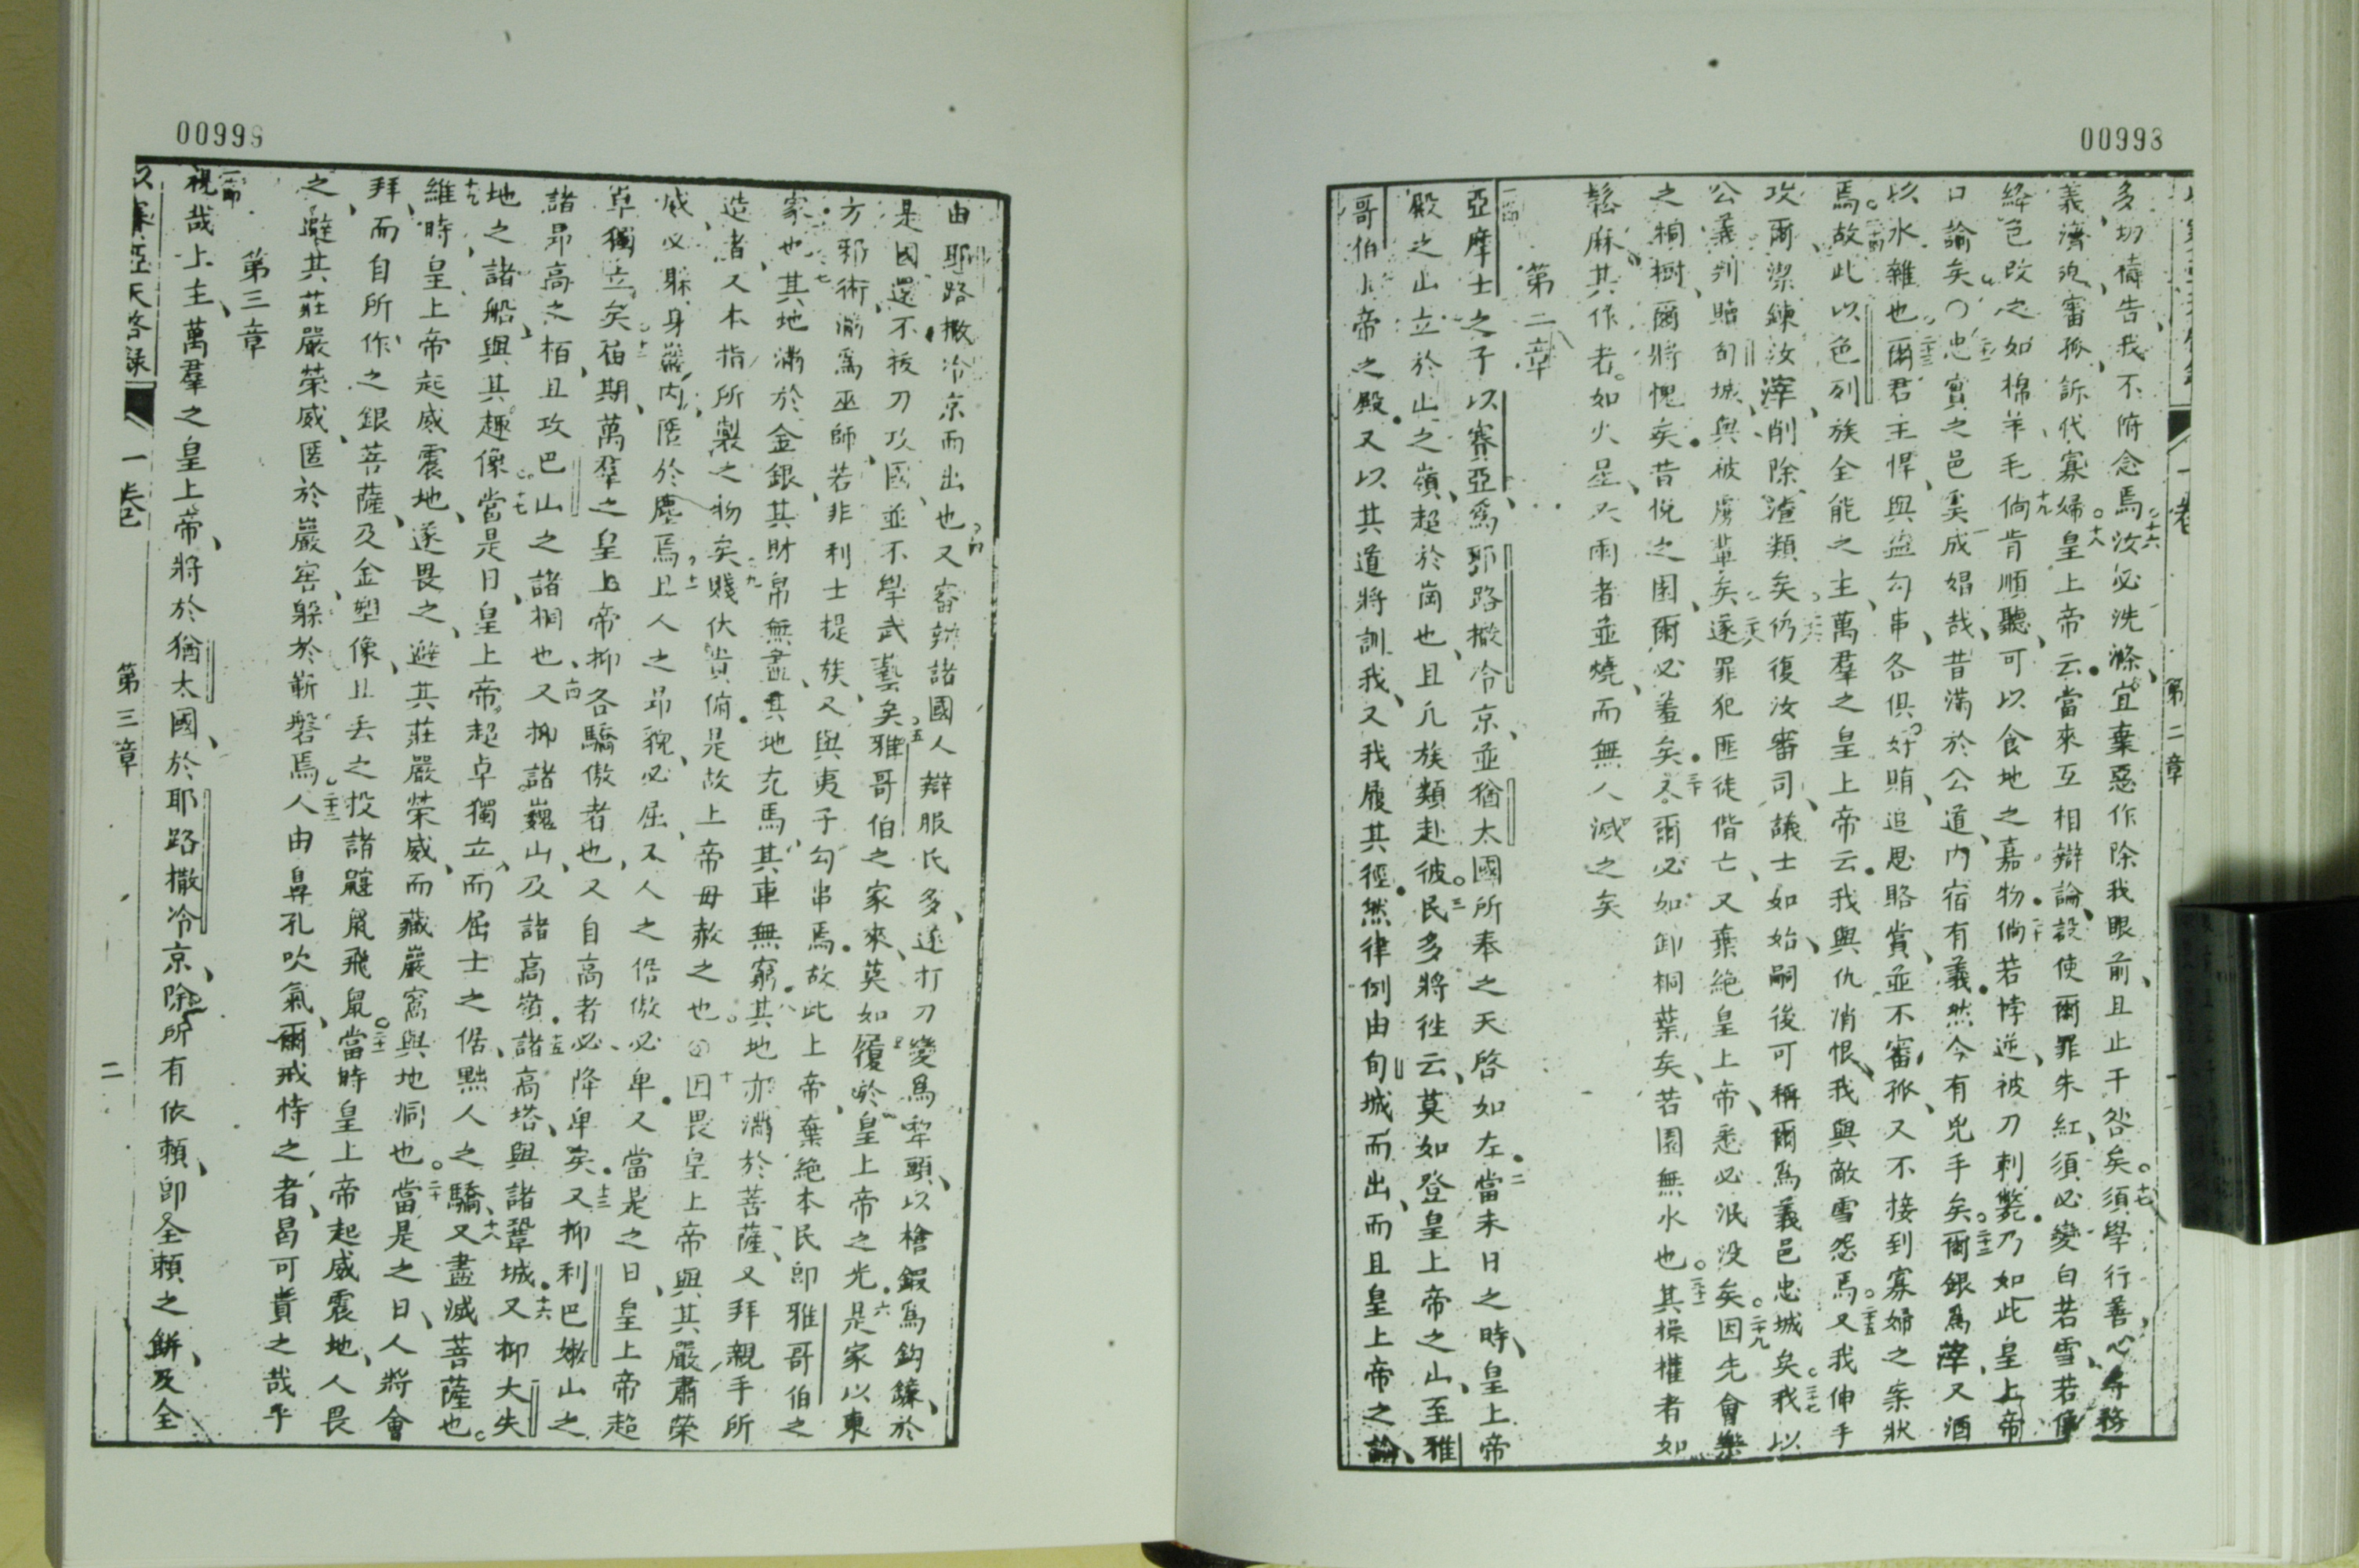 00993
一卷 第二章
多切禱告我不俯念焉十六汝必洗滌宜棄惡作除我眼前且止干咎矣十七須學行善務
義濟寃審孤訴代寡婦十八皇上帝云當來互相辯論設使爾罪朱紅須必變白若雪若
絳色改之如棉羊毛十九倘肯順聽可以食地之嘉物二十倘若悖逆被刀刺斃乃如此皇上帝
口諭矣〇忠實之邑奚成娼哉昔滿於公道內宿有義然今有兇手矣二十二爾銀爲滓又酒
以水雜也二十三爾君主悍與盜勾串各俱好賄追思賂賞並不審孤又不接到寡婦之案狀
焉二十四故此以色列族全能之主萬羣之皇上帝云我與仇消恨我與敵雪怨焉二十五又我伸手
攻爾潔鍊汝滓削除渣類矣二十六仍復汝審司議士如始嗣後可稱爾爲義邑忠城矣二十七我以
公義判贖旬城與被虜輩矣二十八遂罪犯匪徒偕亡又棄絕皇上帝悉必泯没矣二十九因先會樂
之桐樹爾將愧矣昔悅之囷爾必羞矣三十又爾必如卸桐葉矣若園無水也三十一其操權者如
鬆麻其作者如火星又兩者並燒而無人滅之矣
第二章
亞摩士之子以賽亞爲耶路撒冷京並猶太國所奉之天啓如左二當末日之時皇上帝
殿之山立於山之嶺超於崗也且凡族類赴彼三民多將往云莫如登皇上帝之山至雅
哥伯上帝之殿又以其道將訓我又我履其徑然律例由旬城而出而且皇上帝之諭
00999
由耶路撒冷京而出也四又審辨諸國人辯服氏多遂打刀變爲犂頭以槍鍜爲鈎鐮於
是國還不拔刀攻國並不學武藝矣五雅哥伯之家來莫如履於皇上帝之光六是家以東
方邪術滿爲巫師若非利士提族又與夷子勾串焉故此上帝棄絕本民即雅哥伯之
家也七其地滿於金銀其財帛無盡其地充馬其車無窮八其地亦滿於菩薩又拜親手所
造者又本指所製之物矣九賤伏貴俯是故上帝毋赦之也十因畏皇上帝與其嚴肅榮
威必躲身巖內匿於塵焉十一且人之昂貌必屈又人之倨傲必卑又當是之日皇上帝超
卓獨立矣十二屆期萬羣之皇上帝抑各驕傲者也又自高者必降卑矣十三又抑利巴嫩山之
諸昂高之栢且攻巴山之諸桐也十四又抑諸巍山及諸高嶺十五諸高塔與諸鞏城十六又抑大失
地之諸船與其趣像十七當是日皇上帝超卓獨立而屈士之倨黜人之驕十八又盡滅菩薩也
十九維時皇上帝起威震地遂畏之避其莊嚴榮威而藏巖窩與地洞也二十當是之日人將會
拜而自所作之銀菩薩及金塑像且丢之投諸鼴鼠飛鼠二十一當時皇上帝起威震地人畏
之避其莊嚴榮威匿於巖窖躲於嶄磐焉二十二人由鼻孔吹氣爾戒恃之者曷可貴之哉乎
第三章
視哉上主萬羣之皇上帝將於猶太國於耶路撒冷京除所有依賴即全賴之餅及全
以賽亞天啓錄 一卷 第三章 二